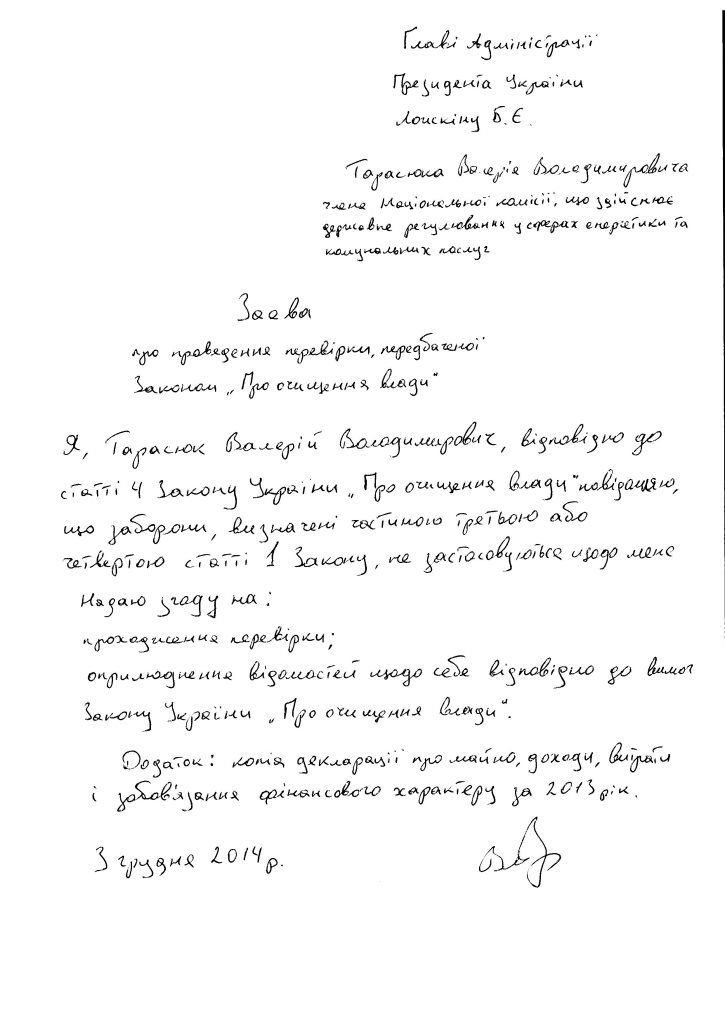 Главі Адміністрації
Президента України
Ложкіну Б.Є.
Тарасюка Валерія Володимировича
члена Національної комісії, що здійснює
державне регулювання у сферах енергетики та
комунальних послуг
Заява
про проведення перевірки, передбаченої
Законом „Про очищення влади"
Я, Тарасюк Валерій Володимирович, відповідно до
статті 4 Закону України „Про очищення влади" повідомляю,
що заборони, визначені частиною третьою або
четвертою статті 1 Закону, не застосовуються щодо мене
Надаю згоду на:
проходження перевірки;
оприлюднення відомостей щодо себе відповідно до вимог
Закону України „Про очищення влади".
Додаток: копія декларації про майно, доходи, витрати
і зобов'язання фінансового характеру за 2013 рік.
3 грудня 2014 р.